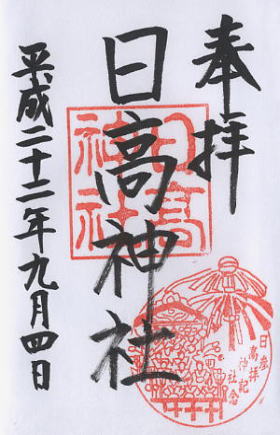 奉拝
日高神社
平成二十二年九月四日
日高
神社
日高神社
参拝記念